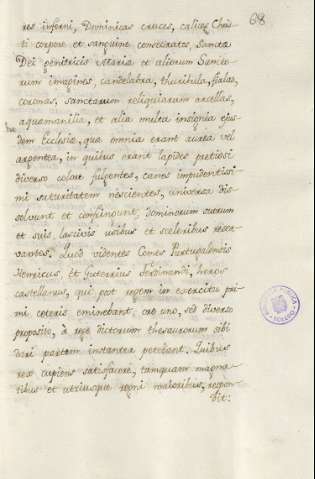 68
res inferni, Dominicas cruces, calices Chris-
ti corpore et sanguine consecratos, Sanctæ
Dei genitricis Mariæ et aliorum Sancto-
rum imagines, candelabra, thuribula, fialas,
coronas, sanctarum reliquiarum arcellas,
aquamanilia, et alia multa insignia ejus-
dem Ecclesiæ, quæ omnia erant aurea vel
argentea, in quibus erant lapides pretiosi
diverso colore fulgentes, canes impudentissi-
mi saturitatem nescientes, universa dis-
solvunt et confringunt, dominorum suorum
et suis lascivis usibus et sceleribus reser-
vantes. Quod videntes Comes Portugalensis
Henricus, et Guterrius Ferdinandi, heros
castellanus, qui post regem in exercitu pri-
mi ceteris eminebant, ore uno, sed diverso
proposito, à rege dictorum thesaurorum sibi
dari partem instanter petebant. Quibus
rex cupiens satisfacere, tamquam magna-
tibus et utriusque regni majoribus, respon-
dit: